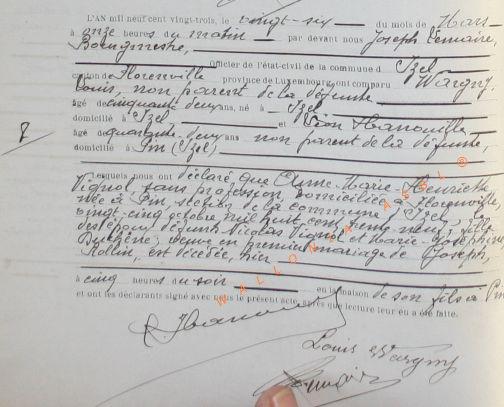 L'AN mil neuf cent vingt-trois, le vingt-six du mois de Mars
à onze heures du matin par devant nous Joseph Lemaire,
Bourgmestre,
Officier de l'état-civil de la commune d'Izel
canton de Florenville province de Luxembourg, ont comparu Wargny,
Louis, non parent de la défunte
âgé de cinquante deux ans, né à Izel
domicilié à Izel et Léon Hanouille
âgé quarante deux ans non parent de la défunte,
domicilié à Pin (Izel)
8
Lesquels nous ont déclaré que Anne-Marie-Henriette
Vignol, sans profession, domiciliée à Florenville,
née à Pin, section de la commune d'Izel, le
vingt-cinq octobre mil huit cent neuf, fille
des époux défunts Nicolas Vignol et Marie-Josephine
veuve en premier mariage de Joseph,
Rollin, est décédée, hier
à cinq heures du soir en la maison de son fils à Pin
et ont les déclarants signé avec nous le présent acte, après que lecture leur eu a été faite.
WALLONIA ASBL ©
Hanouille
Louis Wargny
Lemaire